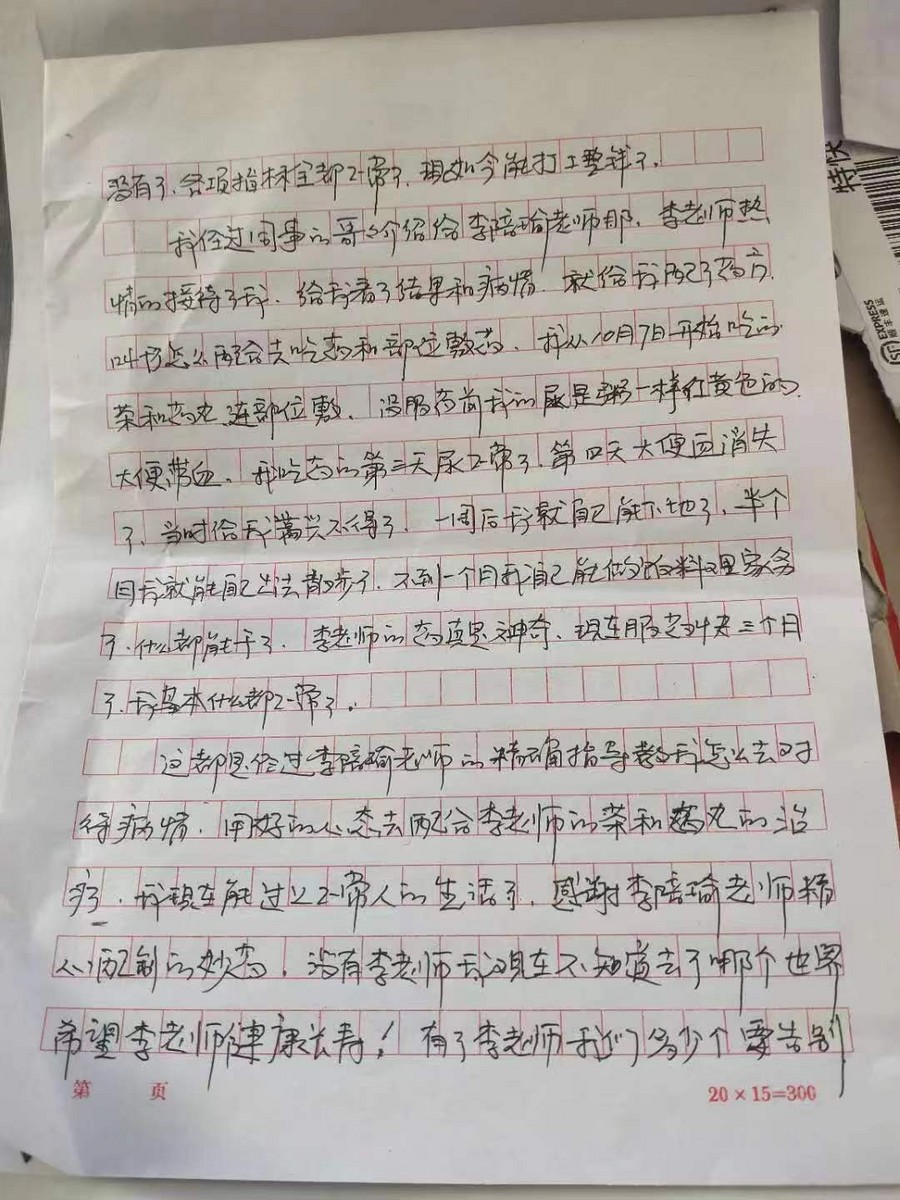 没有了、各项指标全都正常了，现如今能打工挣钱了。
我经过同事的哥哥介绍给李陪瑜老师那、李老师热
情的接待了我、给我看了结果和病情、就给我配了药方、
叫我怎么配合去吃药和部位敷药、我从10月7日开始吃的
茶和药丸连部位敷、没服药前我的尿是粥一样红黄色的、
大便带血、我吃药的第三天尿正常了、第四天大便血消失
了、当时给我高兴不得了、一周后我就自己能下地了、半个
月我就能自己出去散步了、不到一个月我自己能做饭料理家务
了、什么都能干了、李老师的药真是神奇、现在服药快三个月
了、我基本什么都正常了。
这都是经过李陪瑜老师的精确指导教我怎么去对
待病情、用好的心态去配合李老师的茶和药丸的治
疗、我现在能过上正常人的生活了、感谢李陪瑜老师精
心配制的妙药、没有李老师我现在不知道去了哪个世界
希望李老师健康长寿！有了李老师我们多少个要告别
第 页
20×15=300
特快
EXPRESS